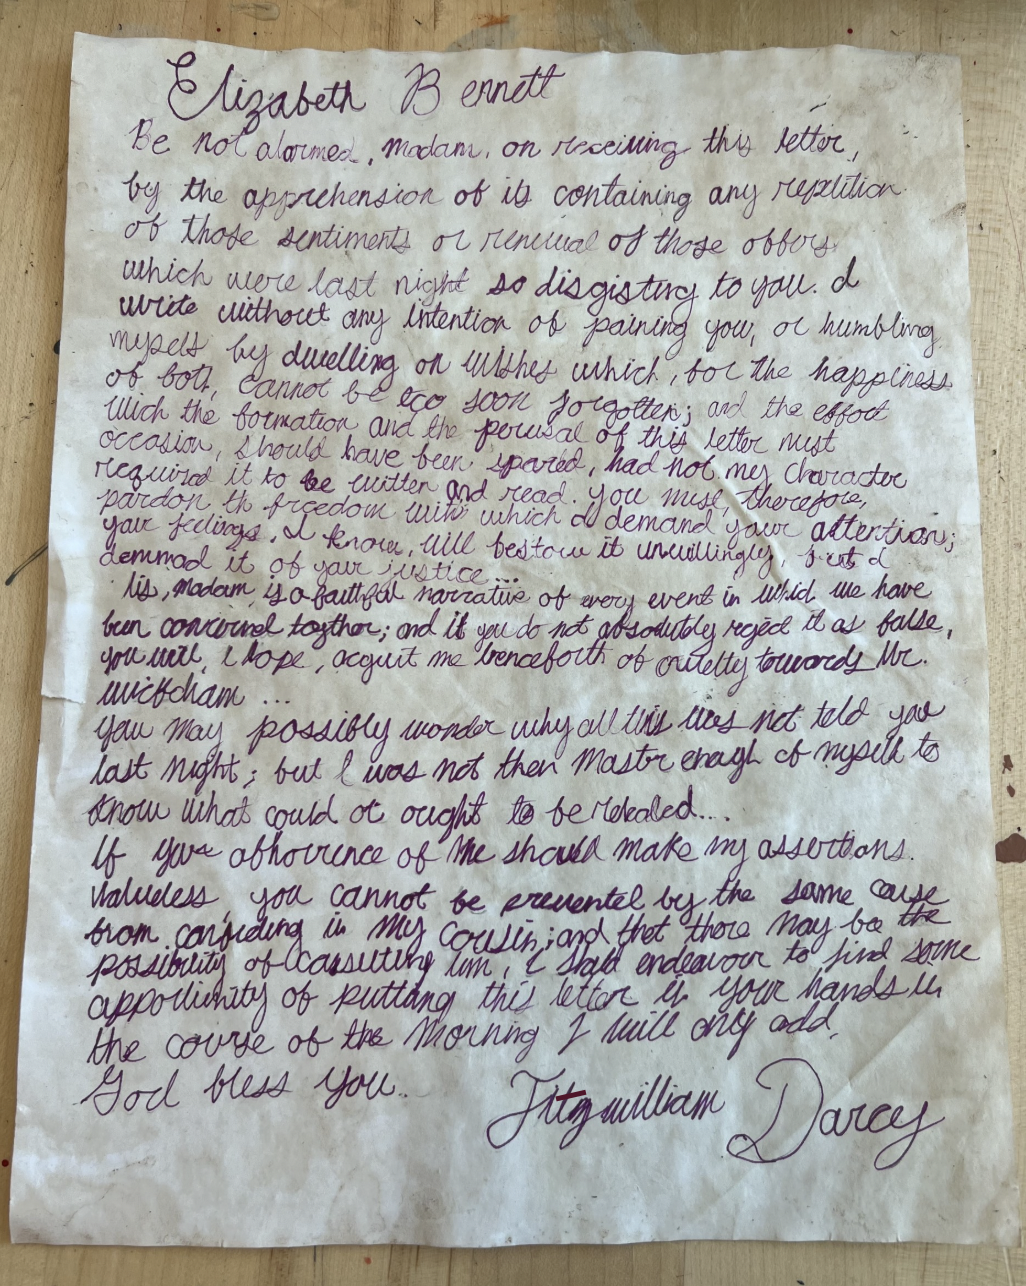 Elizabeth Bennett
Be not alarmed, madam, on receiving this letter,
by the apprehension of its containing any repetition
of those sentiments or renewal of those offers
which were last night so disgisting to you. I
write without any intention of paining you, or humbling
myself by dwelling on wishes which, for the happiness
of both, cannot be too soon forgotten; and the effort
which the formation and the perusal of this letter must
occasion, should have been spared, had not my character
required it to be written and read. You must, therefore,
pardon the freedom with which I demand your attention;
your feelings, I know, will bestow it unwillingly, but I
demmad it of your justice...
This, madam, is a faithful narrative of every event in which we have
been concerned together; and if you do not absolutely reject it as false,
you will, I hope, acquit me henceforth of cruelty towards Mr.
Wickham ...
You may possibly wonder why all this was not told you
last night; but I was not then Master enough of myself to
know what could or ought to be revealed....
If your abhorrence of me should make my assertions.
valueless, you cannot be prevented by the same cause
from confiding in my cousin; and that there may be the
possibility of consulting him, I shall endeavour to find some
opportunity of putting this letter in your hands in
the course of the Morning I will only add,
God bless you.
Fitzwilliam Darcy